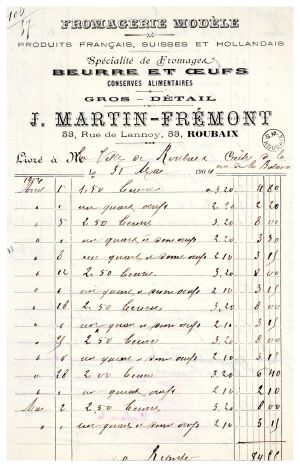 FROMAGERIE MODÈLE
PRODUITS FRANÇAIS, SUISSES ET HOLLANDAIS
Spécialité de Fromages
BEURRE ET ŒUFS
CONSERVES ALIMENTAIRES
GROS - DÉTAIL
J. MARTIN-FRÉMONT
53, Rue de Lannoy, 53, ROUBAIX
Livré à M Ville de Roubaix
le 31 Mai 190
1 1.50 Beurre 3,20 4 80
un quart œufs 2.20 2 20
5 2.50 Beurre 3,20 8 00
un quart et demi œufs
8 un quart et demi œufs 2 10 3 15
12 2.50 Beurre 3,20 8 00
un quart et demi œufs 2 10 3 15
18 2.50 Beurre 3,20 8 00
un quart et demi œufs 2 10 3 15
25 2.50 Beurre 3,20 8 00
un quart et demi œufs 2 10 3 15
28 2.00 Beurre 3,20 6 40
un quart œufs 2 10 2 10
Mai 2 2,50 Beurre 3,20 8 00
un quart et demi œufs 2 10 3 15